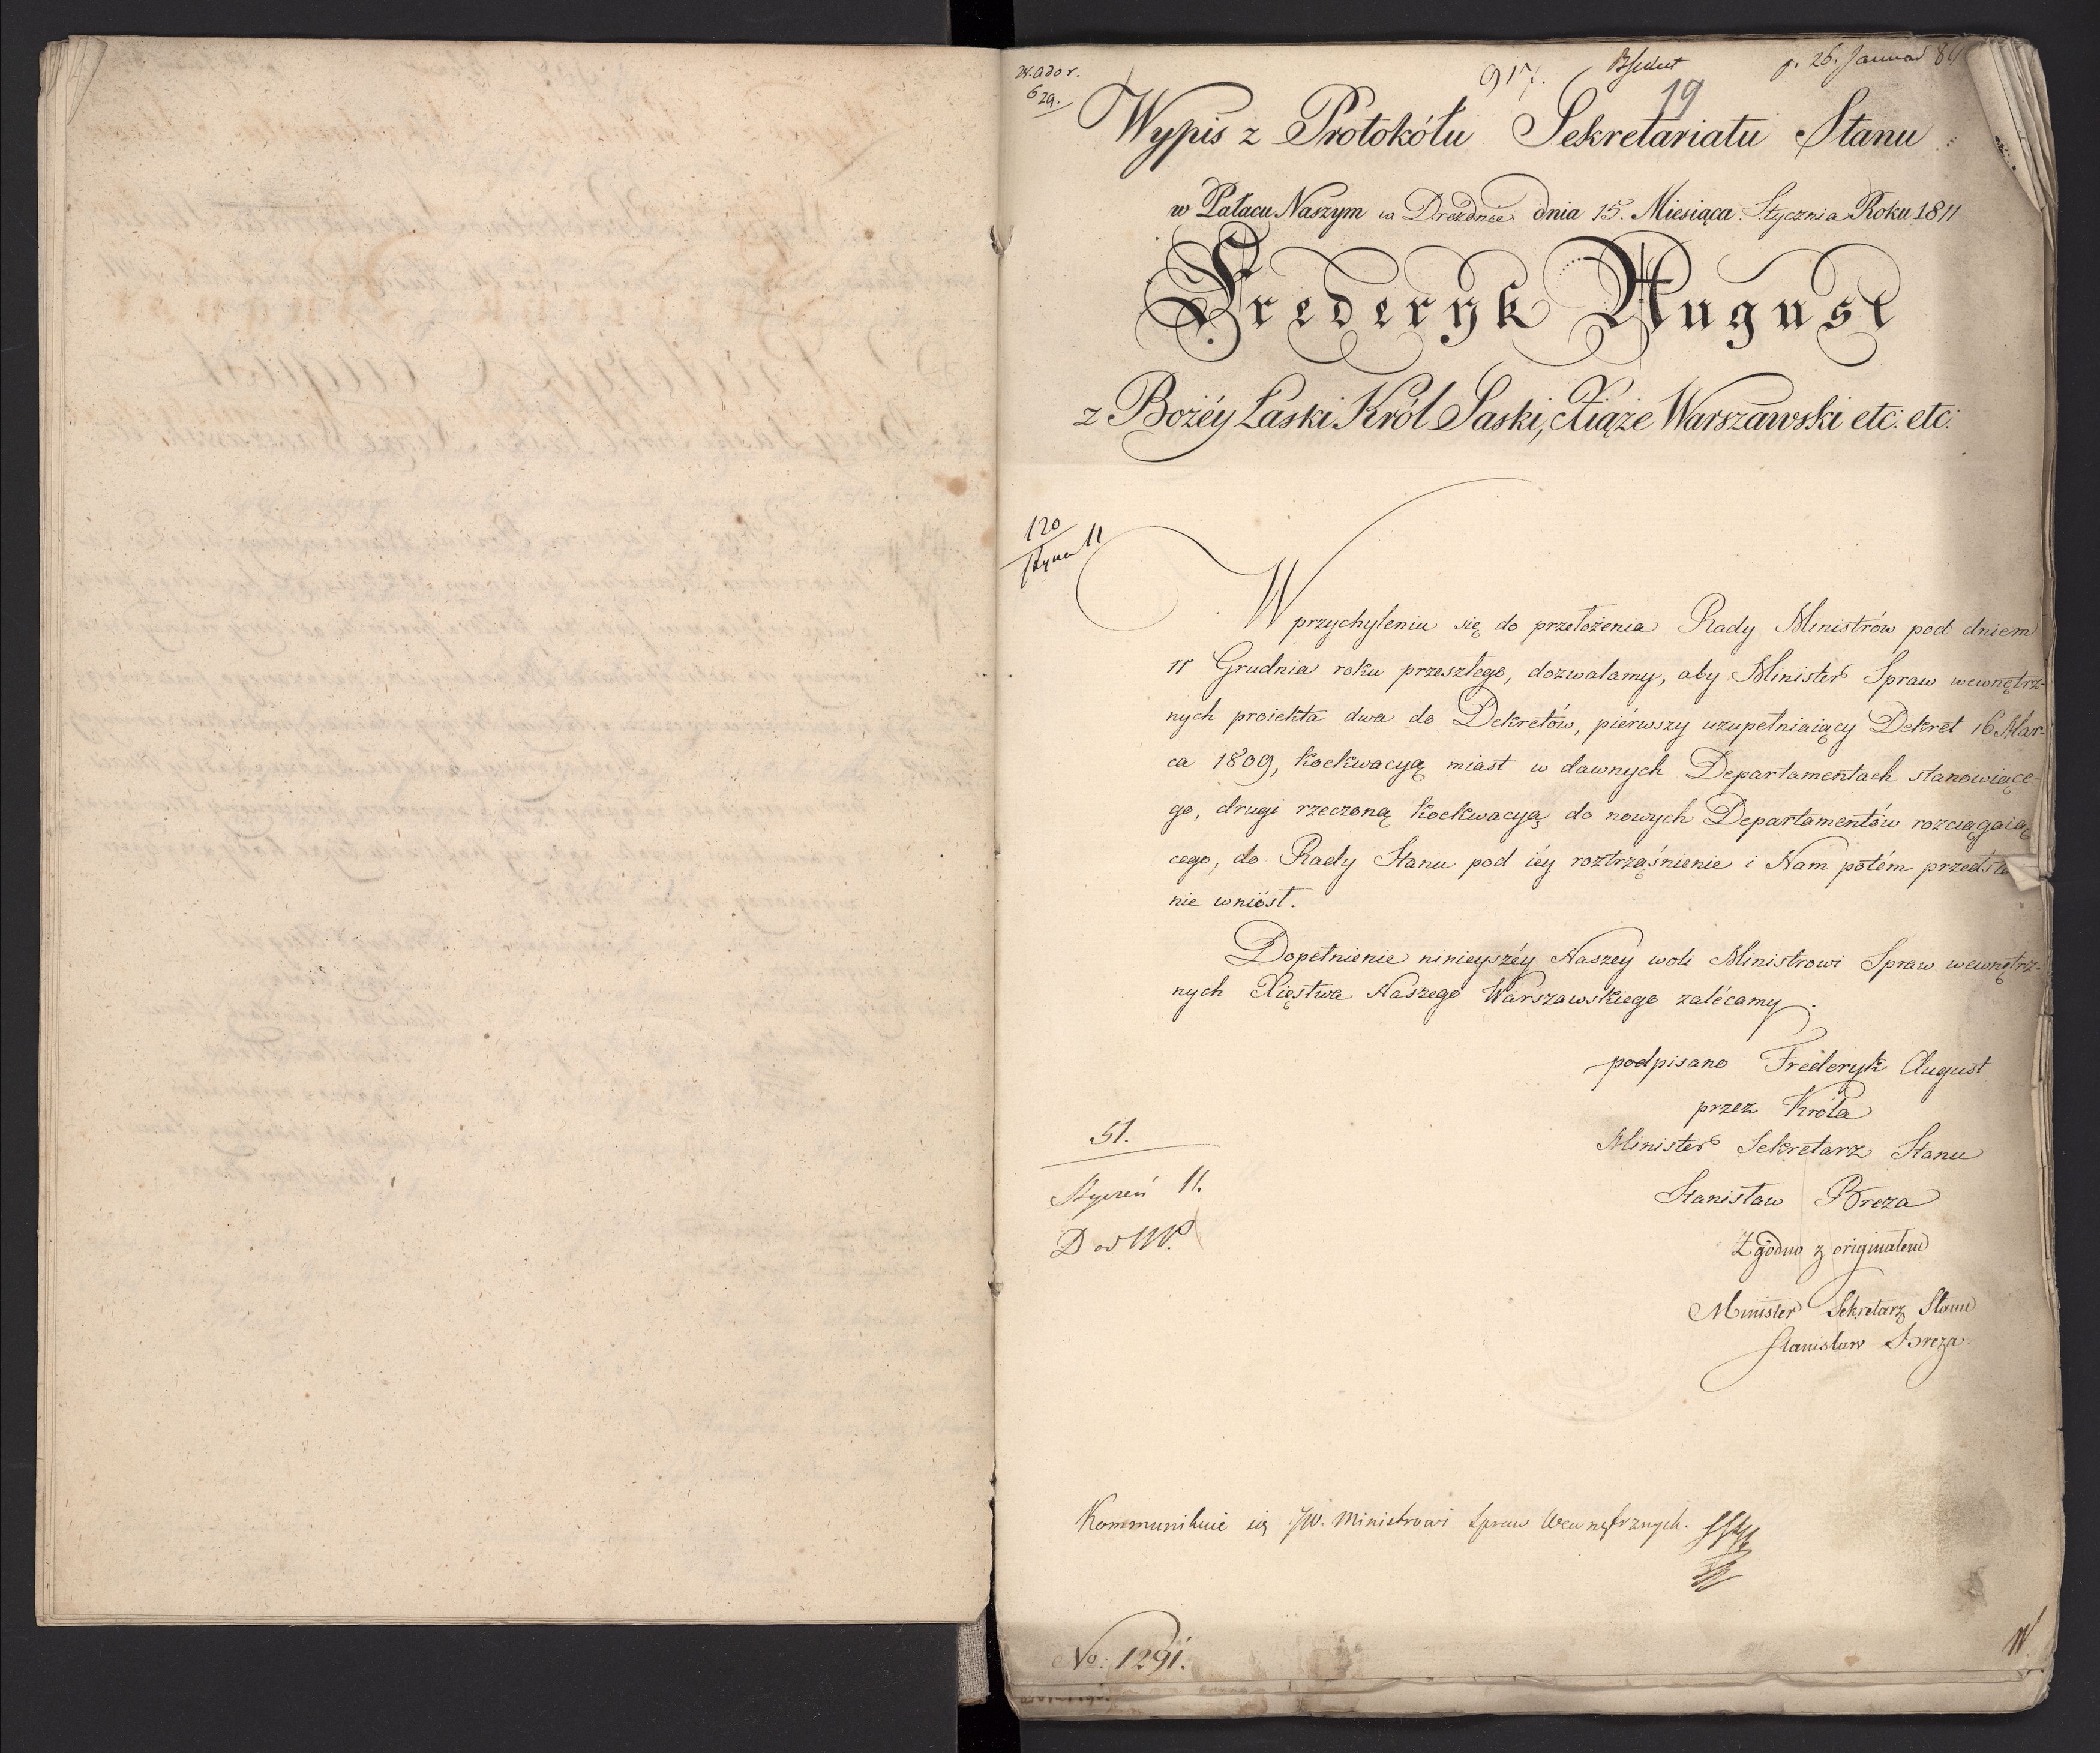 629.
917.
p. 26. Januar
19
Wypis z Protokółu Sekretariatu Stanu
w Pałacu Naszym w Dreźdnie dnia 15. Miesiąca Stycznia Roku 1811
Frederyk August
z Bożéy Łaski Król Saski, Xiąże Warszawski etc: etc:
120
11
W przychyleniu się do przełożenia Rady Ministrów pod dniem
11 Grudnia roku przeszłego, dozwalamy, aby Minister Spraw wewnętrz-
nych proiekta dwa do Dekretów, piérwszy uzupełniaiący Dekret 16 Mar-
ca 1809, koekwacyą miast w dawnych Departamentach stanowiące-
go, drugi rzeczoną koekwacyą do nowych Departamentów rozciągaią
cego, do Rady Stanu pod iéy roztrząśnienie i Nam potém przedsta
nie wniósł.
Dopełnienie ninieyszéy Naszey woli Ministrowi Spraw wewnętrz-
nych Xięstwa Naszego Warszawskiego zalécamy.
podpisano Fréderyk August
przez Króla
Minister Sekretarz Stanu
Stanisław Breza
Zgodno z originałem
Minister Sekretarz Stanu
Stanisław Breza
51.
Styczeń 11.
Kommunikuie się JW. Ministrowi Spraw Wewnętrznych.
No: 1291.